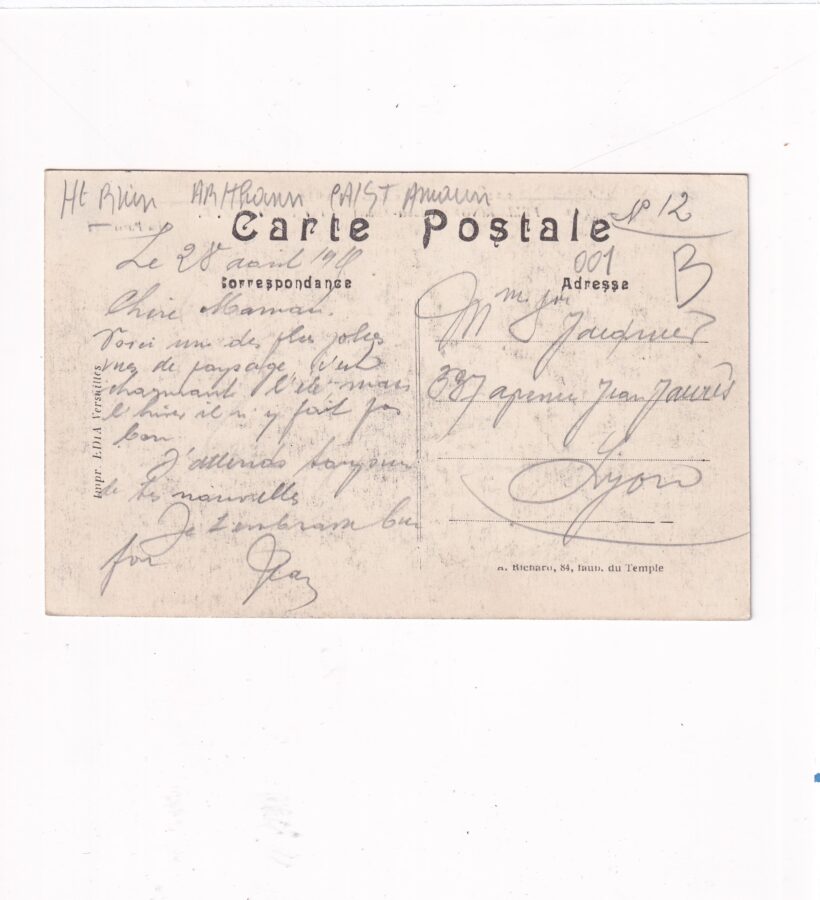 Ht Rhin
N° 12
Carte Postale
Le 28 août 19
001
B
Correspondance
Adresse
Chère Maman.
Voici une des plus jolies
vues de paysage, c'est
charmant l'été mais
l'hiver il n'y fait pas
bon
J'attends toujours
de tes nouvelles
Je t'embrasse bien
fort
Jean
Mme
Jacquier
327 avenue Jean Jaurès
Lyon
Impr. EDIA Versailles
A. Richard, 84, faub. du Temple